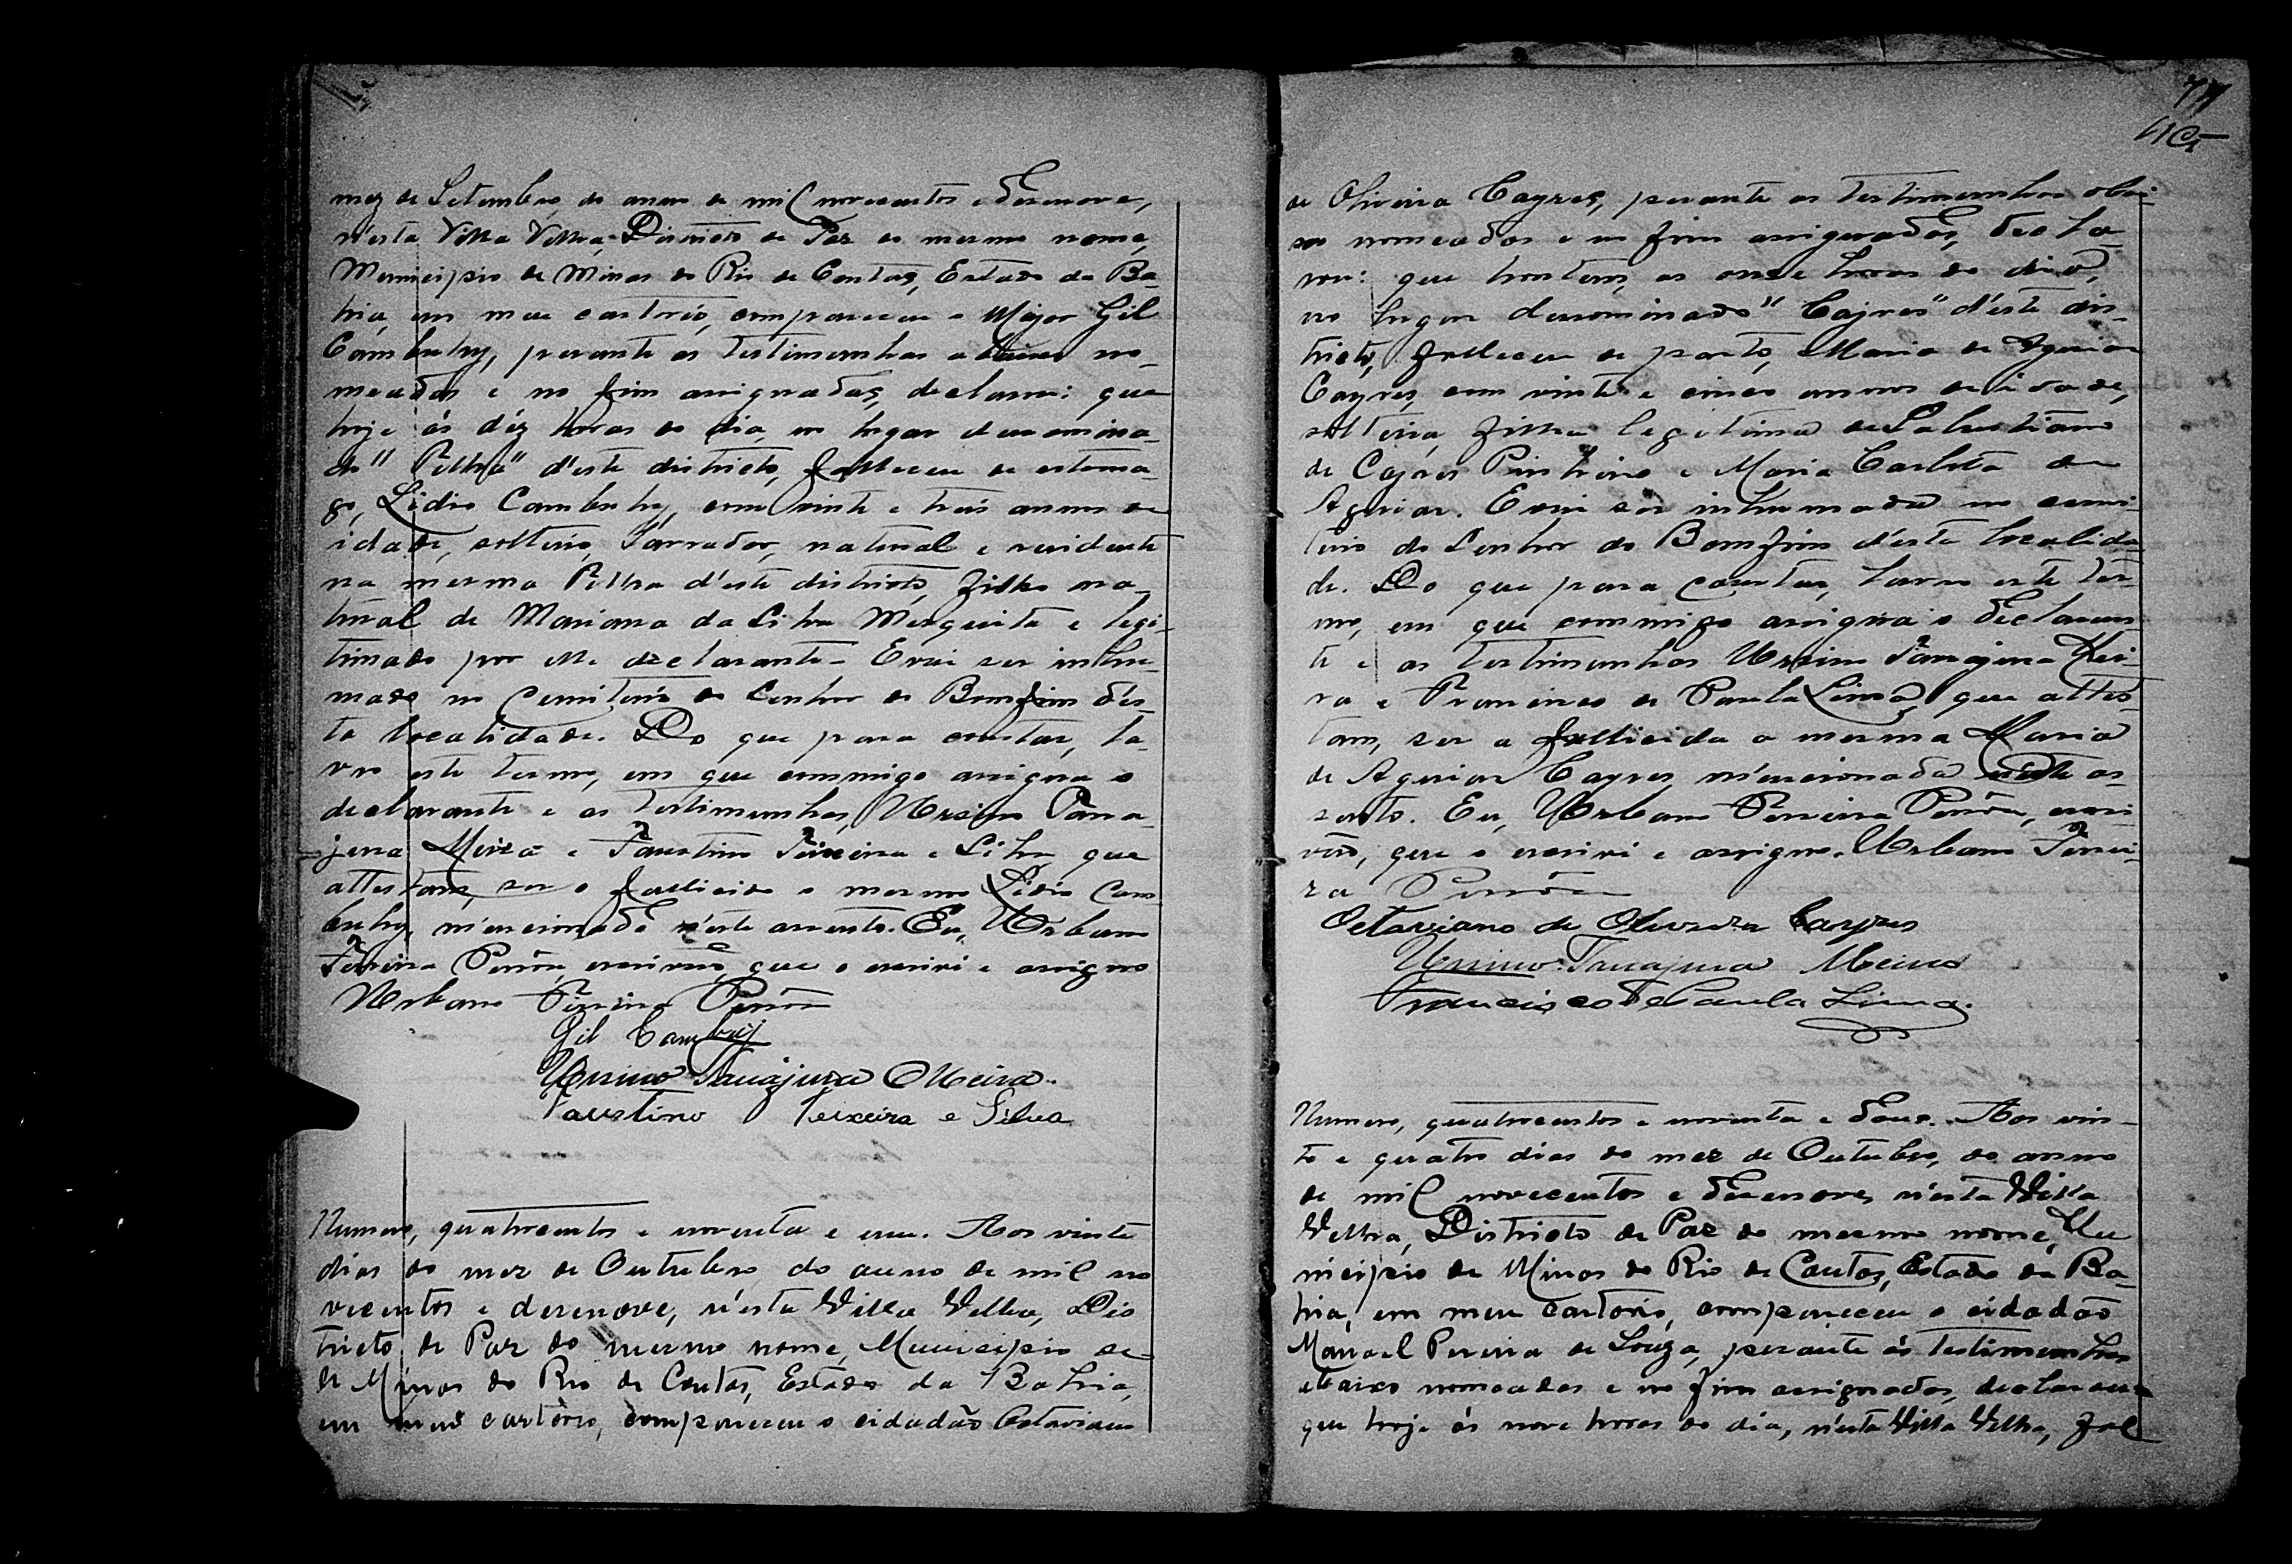 mez de Setembro, do anno de mil novecentos e desenove,
n'esta Villa Velha, Districto de Paz do mesmo nome,
Municipio de Minas do Rio de Contas, Estado da Ba-
hia, em meu cartorio, compareceu o Major Gil
Cambuhy, perante as testimunhas abaixo no-
meadas e no fim assignadas, declarou: que
hoje ás déz horas do dia, no lugar denomina-
do "Pelha" d'este districto, falleceu de estoma-
go, Lidio Cambuhy, com vinte e três annos de
idade, solteiro, lavrador, natural e residente
na mesma Pelha d'este districto, filho na-
tural de Mariana da Silva Mesquita e legi-
timado por elle declarante. E vai ser inhu-
mado no cemiterio do Senhor do Bomfim d'es-
ta localidade. Do que para constar, la-
vro este termo, em que commigo assigna o
declarante e as testimunhas, Ursino Tana-
jura Meira e Faustino Teixeira e Silva, que
attestam, ser o fallecido o mesmo Lidio Cam-
buhy, mencionado n'este assento. Eu, Urbano
Ferreira, escrivão, que o escrivi e assigno
Urbano Ferreira
Gil Cambuy
Ursino Tanajura Meira.
Faustino Teixeira e Silva
Numero, quatrocentos e noventa e um. Aos vinte
dias do mez de Outubro do anno de mil no
vecentos e desenove, n'esta Villa Velha, Dis
tricto de Paz do mesmo nome, Municipio de
de Minas do Rio de Contas, Estado da Bahia,
em meu cartorio, compareceu o cidadão Octaviano
77
de Oliveira Cayres, perante as testimunhas abai-
xo nomeadas e no fim assignadas, decla-
rou: que hontem, as onze horas do dia,
no lugar denominado "Cajres" d'este dis-
tricto, falleceu de parto, Maria de Aguiar
Cayres, com vinte e cinco annos de idade,
solteira, filha legitima de Salustiano
de Cajres Pinheiro e Maria Carlota de
Aguiar. E vai ser inhumada no cemi-
terio do Senhor do Bomfim d'esta localida-
de. Do que para constar, lavro este ter-
mo, em que commigo assigna o declaran-
te e as testimunhas Ursino Tanajura Mei-
ra e Francisco de Paula Lima, que attes-
tam, ser a fallecida a mesma Maria
de Aguiar Cayres, mencionada n'este as-
sento. Eu, Urbano Ferreira, escri-
vão, que o escrivi e assigno. Urbano Ferrei-
ra
Octaviano de Oliveira Cayres
Ursino Tanajura Meira
Francisco de Paula Lima.
Numero, quatrocentos e noventa e dous. Aos vin-
te e quatro dias do mez de Outubro, do anno
de mil novecentos e desenove, n'esta Villa
Velha, Districto de Paz do mesmo nome, Mu
nicipio de Minas do Rio de Contas, Estado da Ba-
hia, em meu cartorio, compareceu o cidadão
Manoel Pereira de Souza, perante ás testimunhas
abaixo nomeadas e no fim assignadas, declarou
que hoje ás nove horas do dia, n'esta Villa Velha, fal